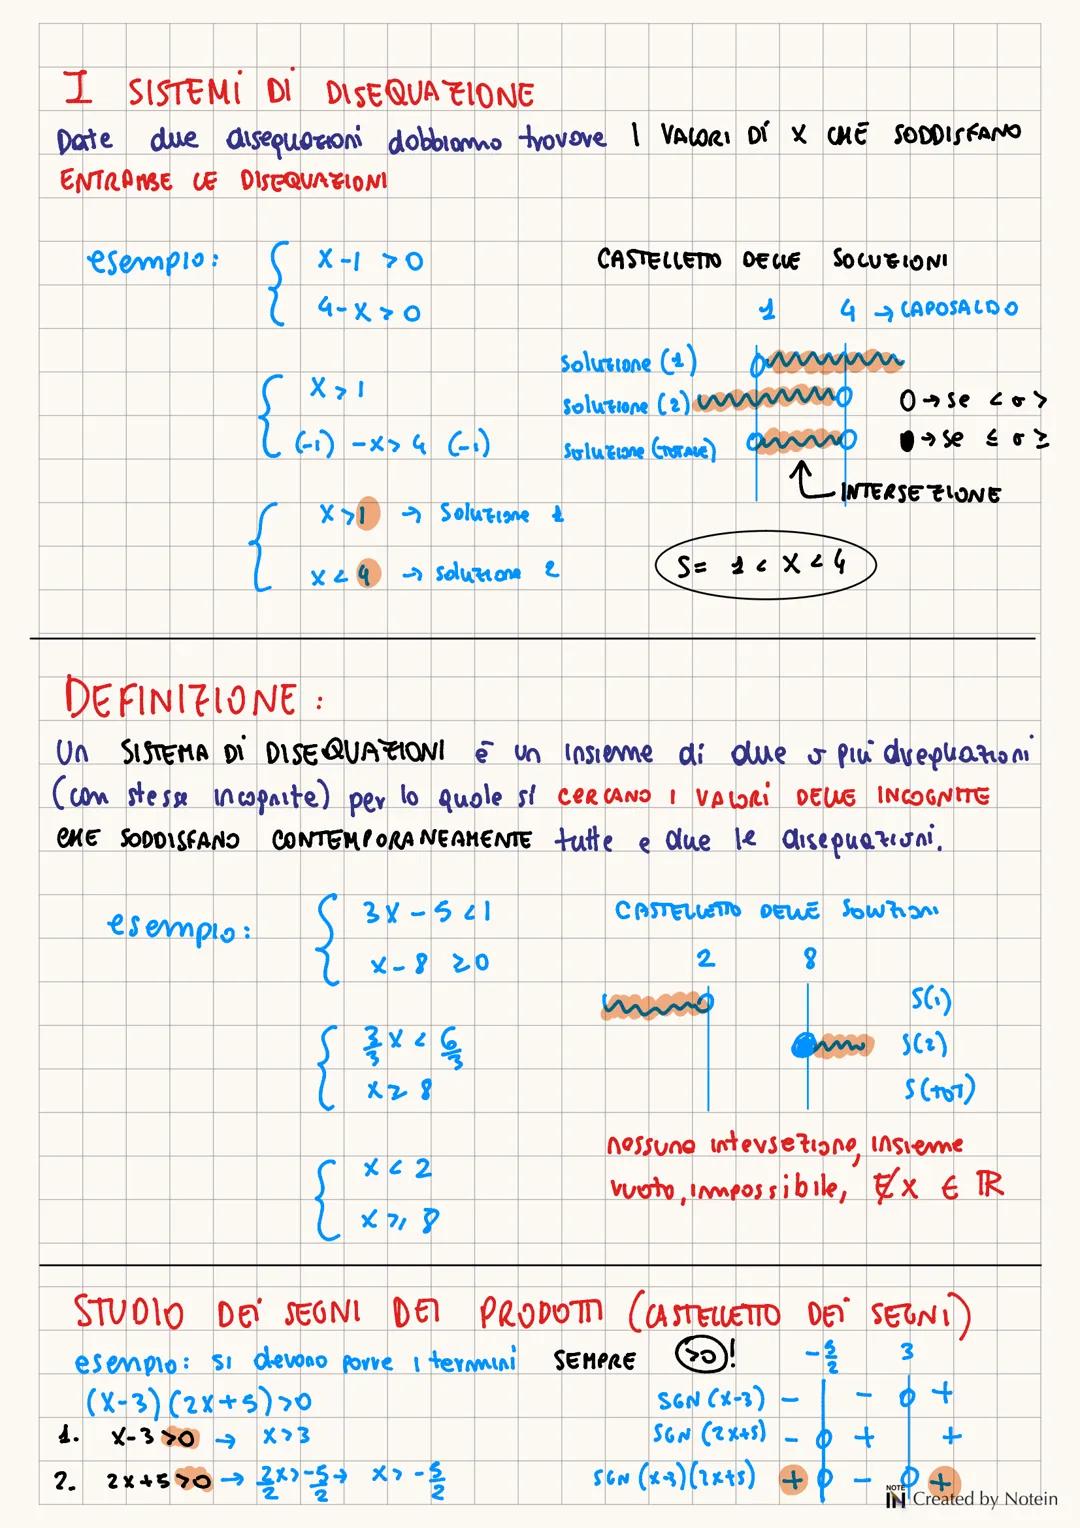 I SISTEMI DI DISEQUAZIONE
Date due disequazioni dobbiamo trovare I VALORI DI X CHE SODDISFANO
ENTRAMBE LE DISEQUAZIONI
esempio:
x-1 >0
4-x>0
CASTELLETTO DELLE SOLUZIONI
1 4 → CAPOSALDO
x>1
(-1) -x> 4 (-1)
Soluzione (1)
Soluzione (2)
Soluzione (TOTALE)
O → se < o >
● → se ≤ o ≥
INTERSEZIONE
x>1 → Soluzione 1
x<4 → Soluzione 2
S= 1 < X < 4
DEFINIZIONE:
Un SISTEMA DI DISEQUAZIONI è un insieme di due o più disequazioni
(con stesse incognite) per lo quale si CERCANO I VALORI DELLE INCOGNITE
CHE SODDISFANO CONTEMPORANEAMENTE tutte e due le disequazioni.
esempio:
3x-5<1
x-8 ≥0
CASTELLETTO DELLE SOLUZIONI
2 8
S(1)
S(2)
S(TOT)
3/3 x < 6/3
x≥ 8
x< 2
x≥ 8
nessuna intersezione, insieme
vuoto, impossibile, ∄x ∈ ℝ
STUDIO DEI SEGNI DEI PRODOTTI (CASTELLETTO DEI SEGNI)
esempio: si devono porre i termini SEMPRE >0!
(x-3)(2x+5)>0
1. x-3>0 → x>3
2. 2x+5>0 → 2x/2>-5/2→ x> -5/2
-5/2 3
SGN (x-3) - - 0 +
SGN (2x+5) - 0 + +
SGN (x-3)(2x+5) + 0 - 0 +
NOTE IN Created by Notein